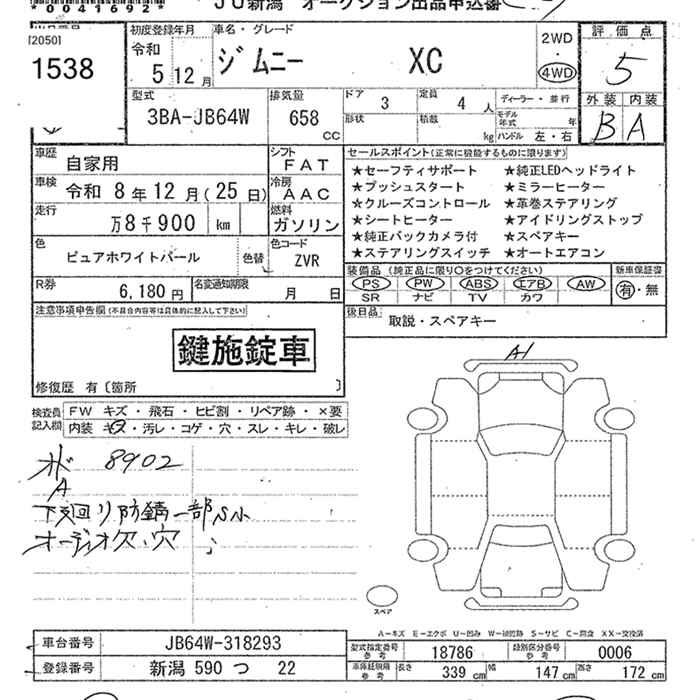 *0041692*
JU新潟 オークション出品申込書
[2050]
1538
初度登録年月
令和
5 12 月
車名・グレード
ジムニー XC
2WD
・
4WD
評価点
5
外装 内装
B A
型式
3BA-JB64W
排気量
658
CC
ドア
3
定員
4 人
形状
積載
kg
ディーラー・並行
モデル年式 年
ハンドル 左・右
車歴
自家用
シフト
FAT
車検
令和 8年12月(25日)
冷房
AAC
走行
万8千900 km
燃料
ガソリン
色
ピュアホワイトパール
色替
色コード
ZVR
R券
6,180円
名変通知期限
月 日
セールスポイント(正常に機能するものに限ります)
★セーフティサポート ★純正LEDヘッドライト
★プッシュスタート ★ミラーヒーター
★クルーズコントロール ★革巻ステアリング
★シートヒーター ★アイドリングストップ
★純正バックカメラ付 ★スペアキー
★ステアリングスイッチ ★オートエアコン
装備品(純正品に限り○をつけてください)
PS PW ABS エアB AW
SR ナビ TV カワ
新車保証書
有・無
後日品
取説・スペアキー
注意事項申告欄(不具合内容等は具体的に記入して下さい)
鍵施錠車
修復歴 有〔箇所 〕
検査員記入欄
FW キズ・飛石・ヒビ割・リペア跡・×要
内装 キズ・汚レ・コゲ・穴・スレ・キレ・破レ
オド 8902
A
下廻り防錆一部
オーディオ欠・穴
A1
スペア
A-キズ E-エクボ U-凹み W-補修跡 S-サビ C-腐食 XX-交換済
車台番号
JB64W-318293
登録番号
新潟 590 つ 22
型式指定番号
参考
18786
類別区分番号
参考
0006
車庫証明用
参考
長さ
339 cm
幅
147 cm
高さ
172 cm